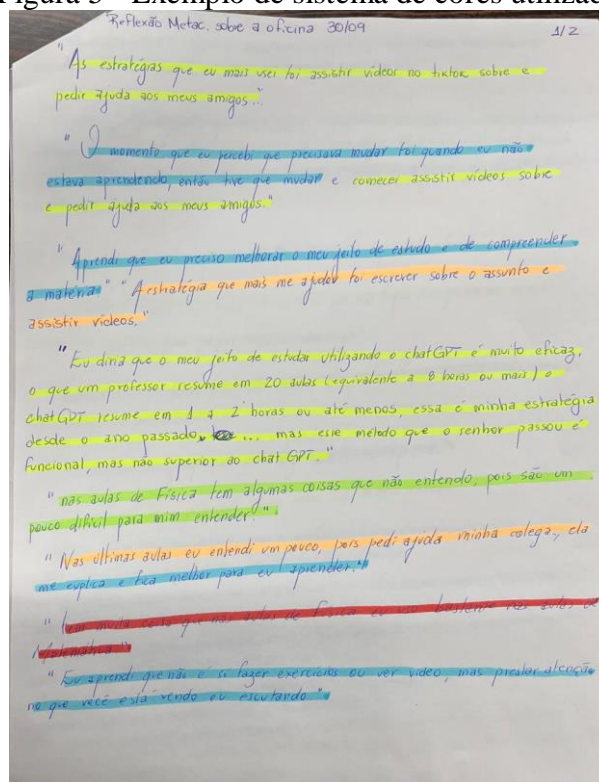 Reflexão Metac. sobre a oficina 30/09
1/2
"As estratégias que eu mais usei foi assistir vídeos no tiktok sobre e
pedir ajuda aos meus amigos."
"O momento que eu percebi que precisava mudar foi quando eu não
estava aprendendo, então tive que mudar e comecei assistir vídeos sobre
e pedir ajuda aos meus amigos."
"Aprendi que eu preciso melhorar o meu jeito de estudo e de compreender
a matéria" "A estratégia que mais me ajudou foi escrever sobre o assunto e
assistir vídeos."
"Eu diria que o meu jeito de estudar utilizando o chatGPT é muito eficaz,
o que um professor resume em 20 aulas (equivalente a 8 horas ou mais) o
chatGPT resume em 1 a 2 horas ou até menos, essa é minha estratégia
desde o ano passado, ... mas esse método que o senhor passou é
funcional, mas não superior ao chat GPT."
"nas aulas de Física tem algumas coisas que não entendo, pois são um
pouco difícil para mim entender!"
"Nas últimas aulas eu entendi um pouco, pois pedi ajuda minha colega, ela
me explica e fica melhor para eu aprender."
"Tem muita coisa que nas aulas de Física eu uso bastante nas aulas de
Matemática"
"Eu aprendi que não é só fazer exercícios ou ver vídeo, mas prestar atenção
no que você está vendo ou escutando."